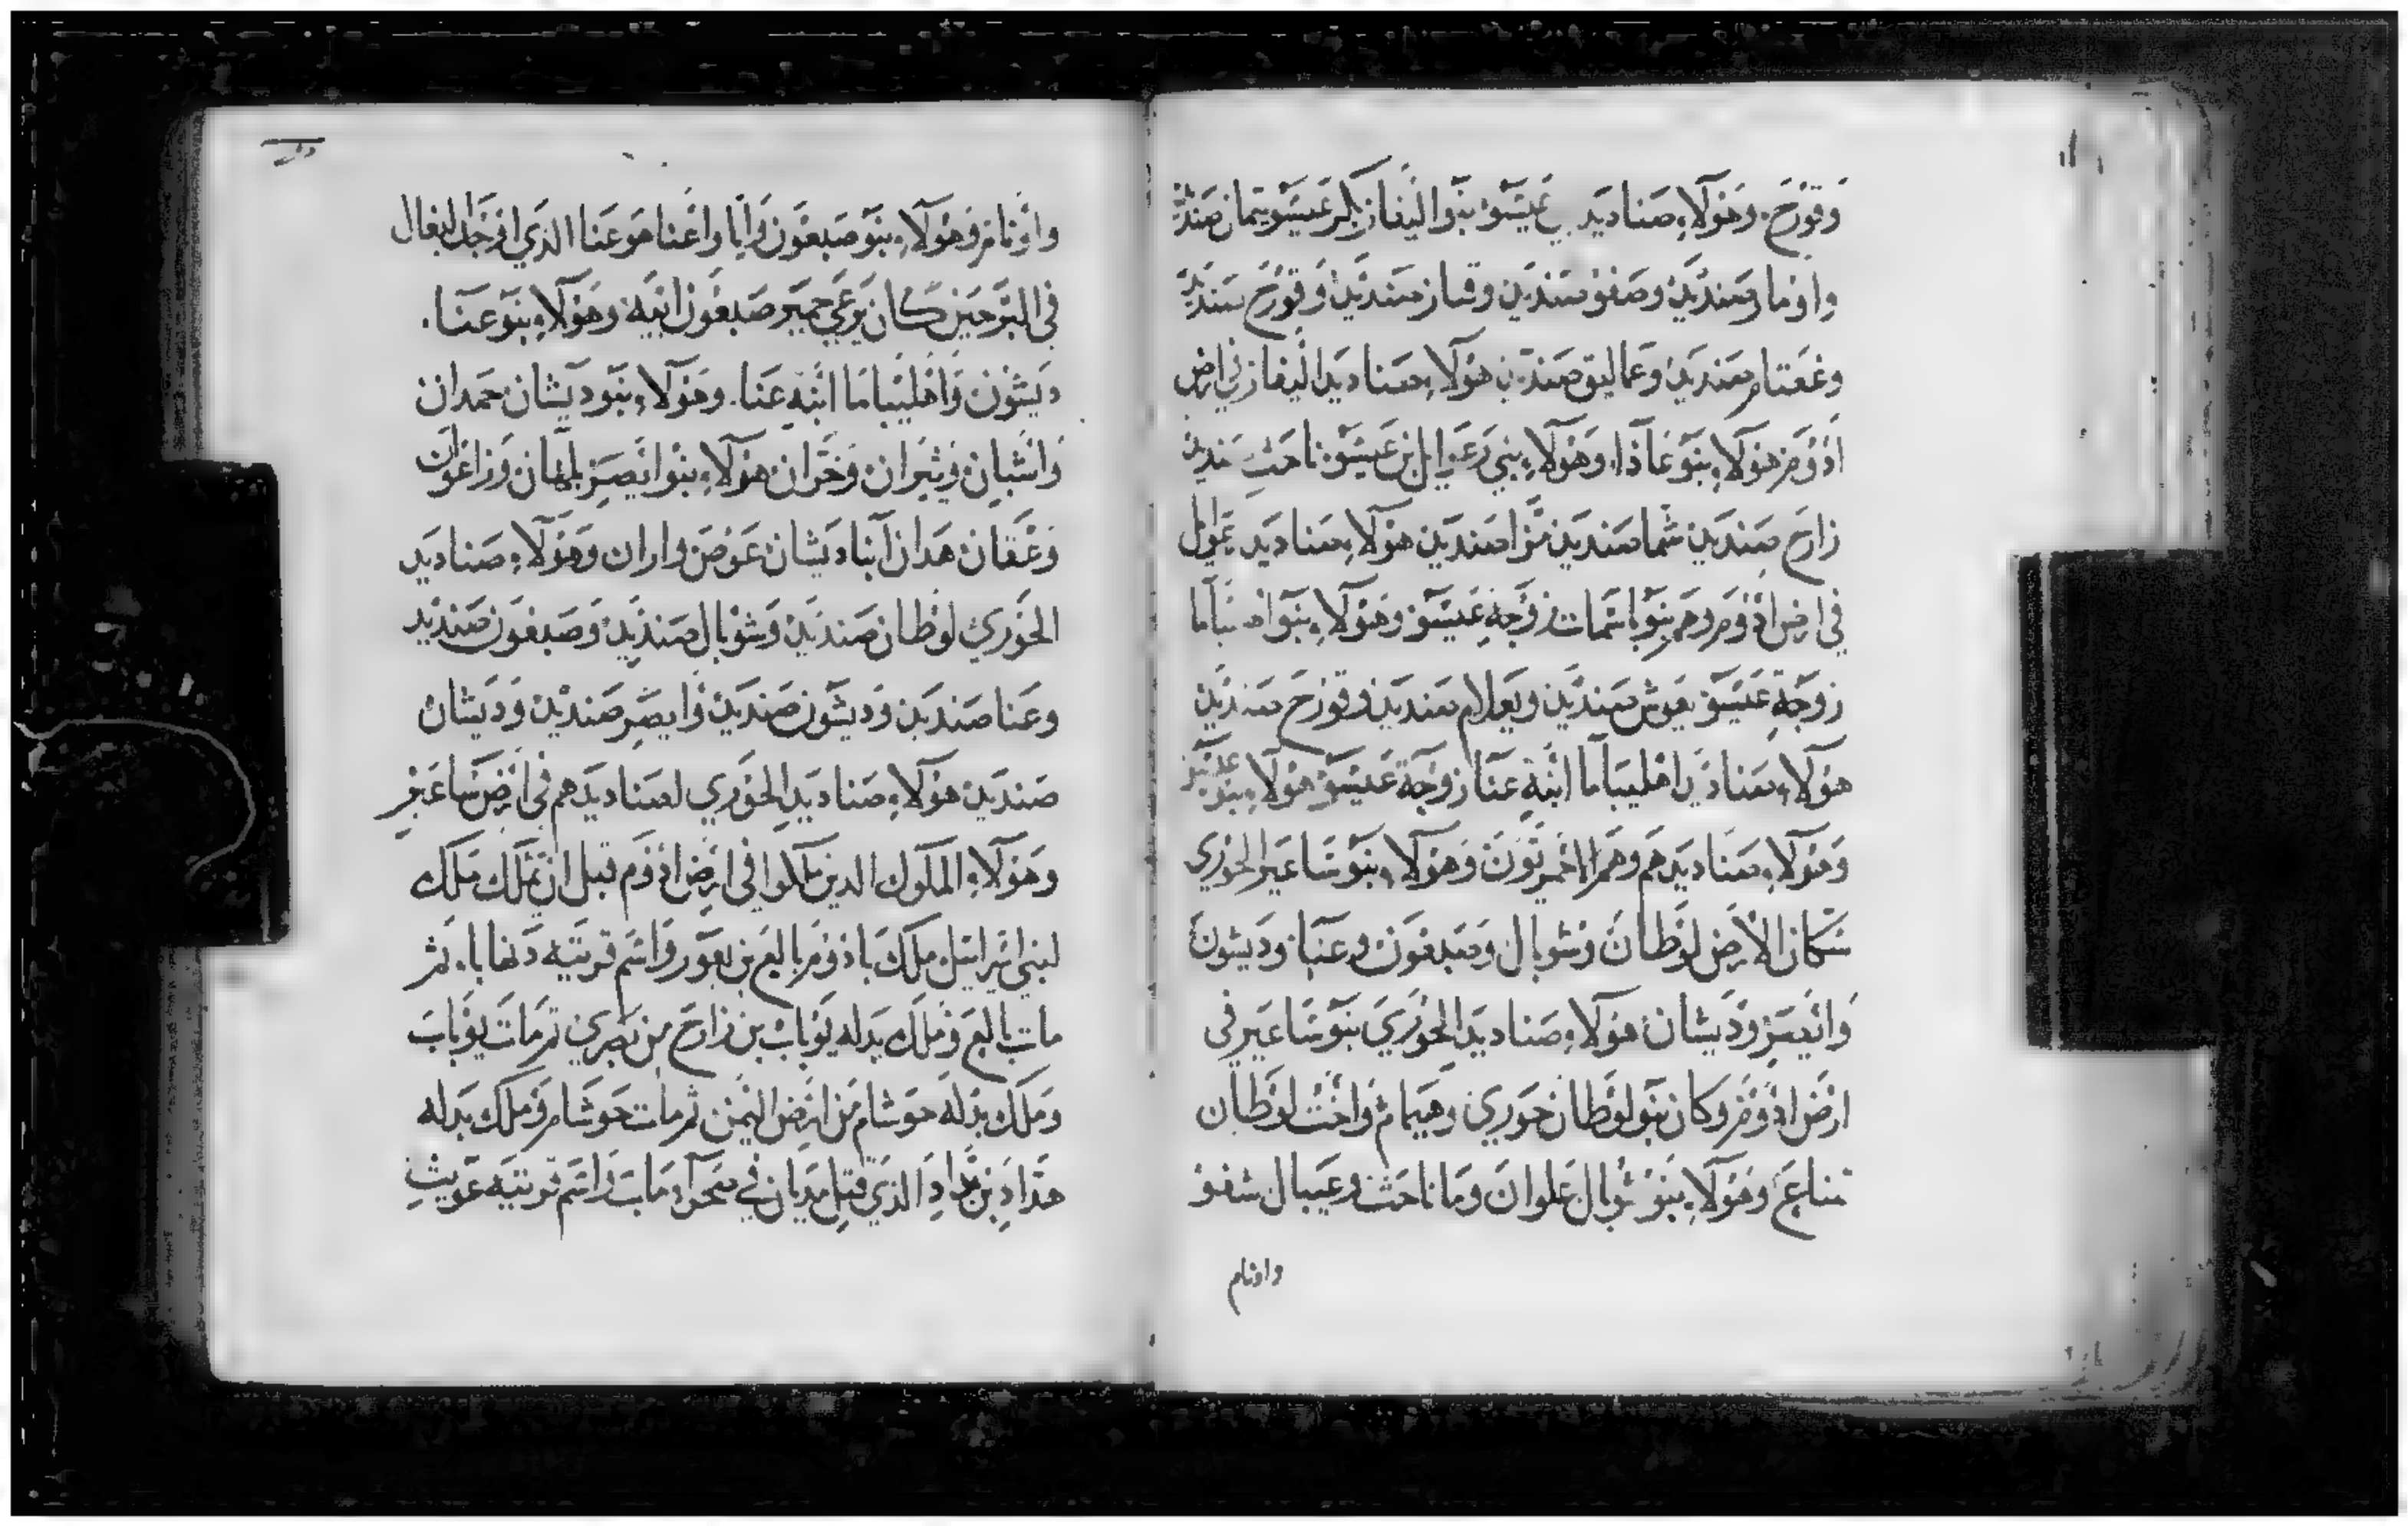 وَقُورَحَ. وهَؤُلَاءِ صَنادَيد عَيسَو بنَوا اليفاز بكر عَيسَو تيمان صَندَيد
واوما رصَندَيد وصَفو صَندَيد وقناز صَندَيد وَقُورَح صَندَيد
وغَعتام صَندَيد وعَماليق صَندَيد هؤلَاءِ صَناديد اليفاز في ارض
اَذْوَم هؤلَاءِ بنَو عَاذا. وَهَؤلَاءِ بني رَعَوايل بن عَيسَو ناحَث صَندَيد
زارح صَندَيد شما صَندَيد مَزا صَندَيد هؤلَاءِ صَناديد رعَوايل
في ارض اذوَم وهم بنَو باسَمات زوَجةِ عَيسَو وهَؤلَاءِ بنَوا اهليباما
زوَجةِ عَيسَو يعَوش صَندَيد ويعلام صَندَيد وقورَح صَندَيد
هؤلَاءِ صَناديد اهليبَاما ابنَةِ عَنا زوَجَة عَيسَو هؤلَاءِ بنَو عيسو
وَهَؤلَاءِ صَناديدَهم وهَم الاحمريَون وَهَؤلَاءِ بنَو سَاعَير الحَوري
سَكان الارَض لوَطان وشوبال وَصَبعَون وعنَا ودَيشون
وَايصَر ودَيشان هؤلَاءِ صَناديدَ الحَوَريَ بنَو سَاعَير في
ارَض اذوَم وكان بنَو لوَطان حوَري وهَيمام وَاخَت لوَطان
تمناعَ وهَؤلَاءِ بنَو شوبال عَلوان ومَاناحَث وعَيبال شفو
واونام
واوَنام وَهؤلَاءِ بنَو صَبعَون وَايا واعَنا هَو عَنا الذي اوَجَد البغال
في البَرحَين كان يَرعَي حمَير صَبعَون ابَيه وهَؤلَاءِ بنَو عَنا.
دَيشوَن وَاهليباما ابنَةِ عَنا. وهَؤلَاءِ بنَو ديَشان حَمدان
وَاشَبان وَيثَران وَخَران هؤلَاءِ بنَوا ايصَر بلهَان وَزاعَوان
وَعَقان هَذان ابنا ديَشان عَوُصَ واران وهَؤلَاءِ صَناديَد
الحَوَري لوَطان صَندَيد وَشوَبال صَندَيد وَصَبعَون صَندَيد
وعَنا صَندَيد وَديشَون صَندَيد وَايصَر صَندَيد وَديَشان
صَندَيد هؤلَاءِ صَناديَد الحَوَري لصَناديدَهم في ارَض سَاعَير
وهَؤلَاءِ الملَوك الدين ملكوا في ارَض اذوَم قبل ان يَملك مَلك
لبني اسَراييَل ملك باذوَم بالعَ بن بعَور وَاسَم قريتَه دَنهابا. ثم
مات بالعَ وَملك بدَله يوَبابَ بن زارَح من بصَري ثم مات يوَبابَ
وَملك بدَله حوَشام مَن ارَض اليمَن ثم مات حَوشام وَملك بدَله
هَدادِ بن بدادِ الذي قتل مديان في صَحرآءِ مَابَ وَاسَم قريتَه عَوَيث